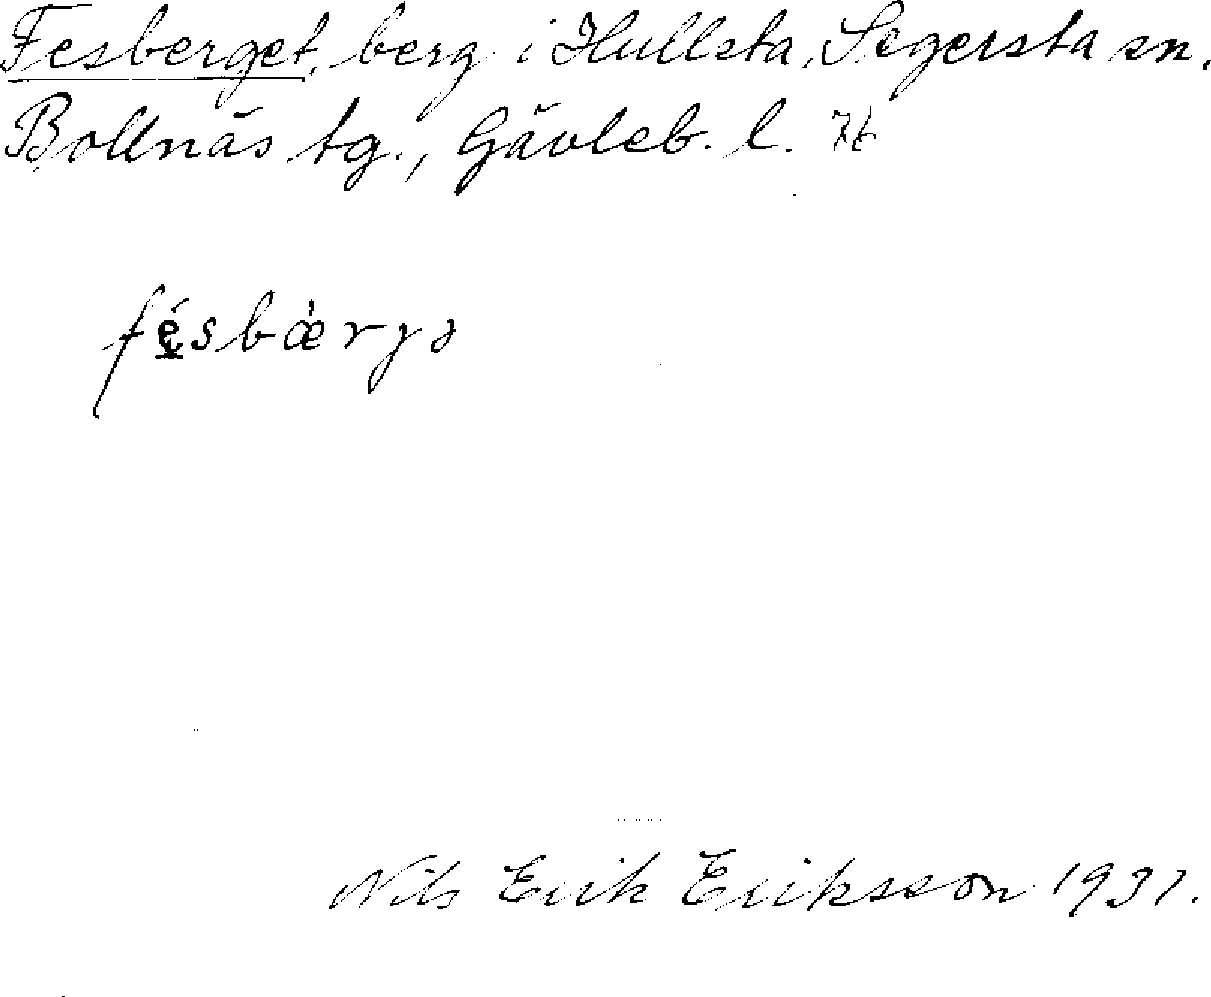 Fesberget, berg i Hullsta, Segersta sn.
Bollnäs tg., Gävleb. l. 76
fésbæ̀rjə
Nils Erik Eriksson 1931.